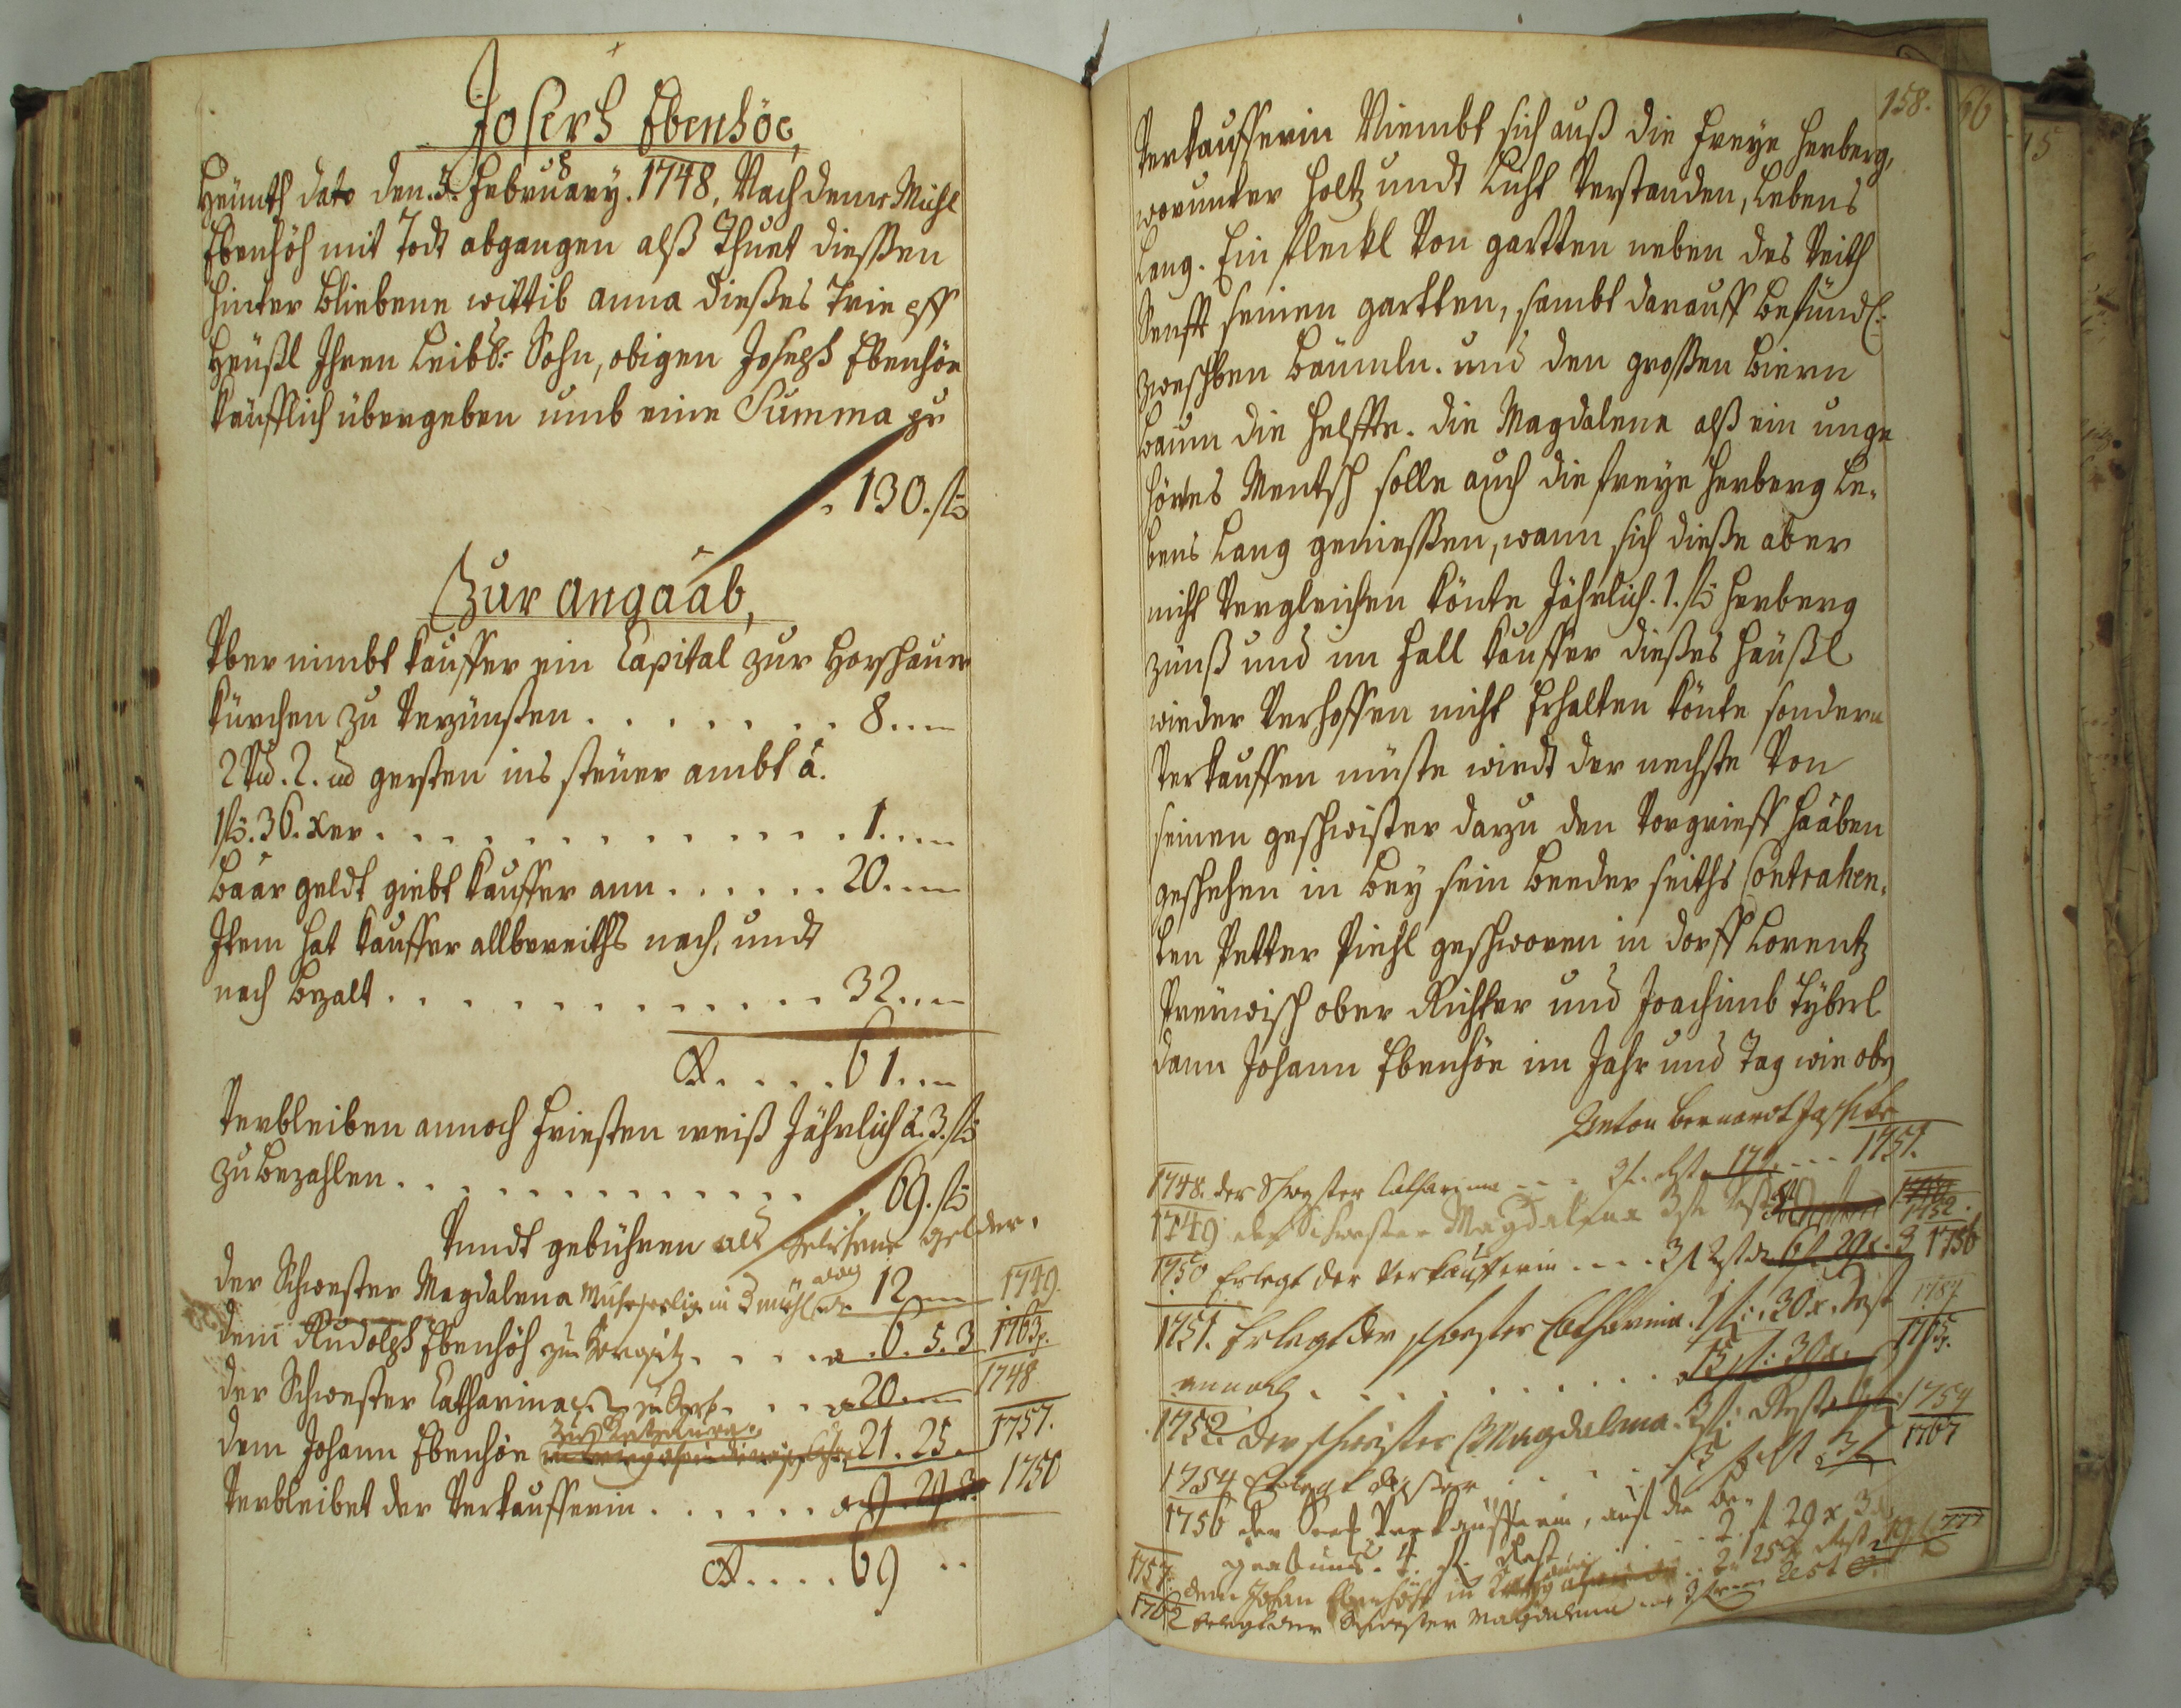 Joseph Ebenhöe,
Heünth dato den 5. February. 1748, Nach deme Michl
Ebenhöh mit Todt abgangen alß Thuet dießen
hinter bliebene wittib anna dießes
Heüßl Ihren Leibl: Sohn, obigen Joseph Ebenhöe
käufflich übergeben umb eine Summa pr
130. fl
Zur angaab,
Über nimbt Kauffer ein Capital zur Horschauer
Kürchen zu Verzünßen . . . . . . . 8
2. gersten ins steüer ambt á.
1 fl. 36. xer . . . . . . . . . . 1
Baar geldt giebt Kauffer ann . . . . . . 20
Item hat Kauffer allbereiths nach, undt
nach bezalt . . . . . . . . . . . 32
61
Verbleiben annoch Friesten weiß Jährlich á. 3. fl
zu bezahlen . . . . . . . . . . . 69. fl
Undt gebühren als gelder.
der Schwester Magdalena 12 1749
dem Rudolph Ebenhöh zu . . . . 6. 5. 3 1763
der Schwester Catharina . . . 20 1748
dem Johann Ebenhöe 21. 25. 1757.
Verbleibet der Verkaufferin . . . . . . 9. 29. 3. 1750
69
158.
Verkaufferin Niembt sich auß die Freye Herberg,
worunter Holtz undt Licht Verstanden, Lebens
Lang. Ein fleckl Von gartten neben des Veith
Senfft seinen gartten, sambt darauff befündl:
zweschben Bäumln. und den großen Biern
Baum die Helffte. die Magdalena alß ein unge
höres Mentsch solle auch die freye Herberg Le-
bens Lang genießen, wann sich dieße aber
nicht Vergleichen könte Jährlich. 1. fl Herberg
zünß und im Fall Kauffer dießes Häußl
wieder Verhoffen nicht Erhalten könte sondern
Verkauffen müste wirdt der nechste Von
seinen geschwister darzu den Vorgrieff haaben
geschehen in Bey sein Beeder seiths Contrahen-
ten Petter Piehl geschworen in dorff Lorentz
ober Richter und Joachimb Tyberl
dann Johann Ebenhöe im Jahr und Tag wie obe
Anton Bernardt
1748. der Schwester Catharina . . . 3 fl. Rest 17 . . . 1751.
1749 der Schwester Magdalena 3 fl Rest 1752.
1750 Erlegt der Verkaufferin . . . . 3 fl Rest 6 fl 29 x. 3 1756
1751. Erlegt der schwester Catharina. 1 fl: 30 x. Rest 1757
annoch . . . . . . . . . 15 fl: 30 x. 1765
1752. der schwester Magdalena. 3 fl: Rest 1754
1754 Erlegt dießer . . . . 3 fl Rest 3 fl 1767
1756 der Verkaufferin, auf die be-
gräbnus. 4. fl. Rest . . . 2 fl 29 x 3
1757. dem Johan Ebenhöh in 2 fl 25 x Rest 19 fl 1777
1762 Erlegt der Schwester Magdalena 3 fl Rest